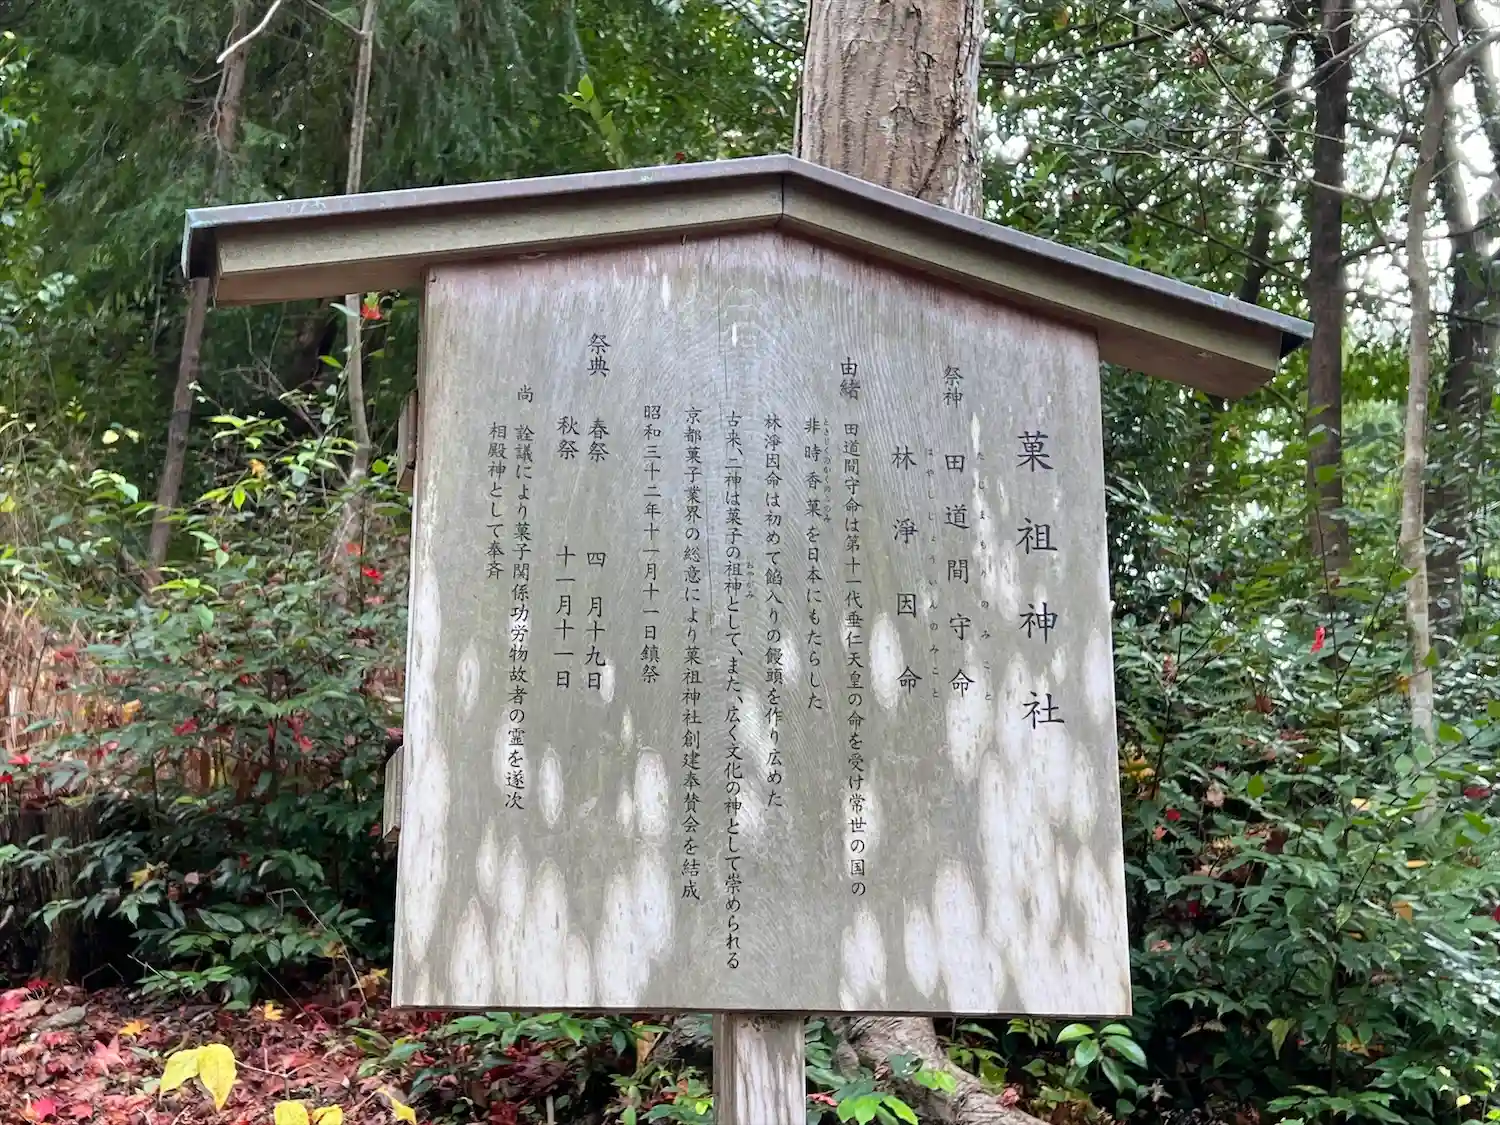 菓祖神社
祭神 田道間守命
たじまもりのみこと
林淨因命
はやしじょういんのみこと
由緒 田道間守命は第十一代垂仁天皇の命を受け常世の国の
非時香菓を日本にもたらした
ときじくのかくのこのみ
林淨因命は初めて餡入りの饅頭を作り広めた
古来、二神は菓子の祖神として、また、広く文化の神として崇められる
おやがみ
京都菓子業界の総意により菓祖神社創建奉賛会を結成
昭和三十二年十一月十一日鎮祭
祭典 春祭 四月十九日
秋祭 十一月十一日
尚 詮議により菓子関係功労物故者の霊を遂次
相殿神として奉斉